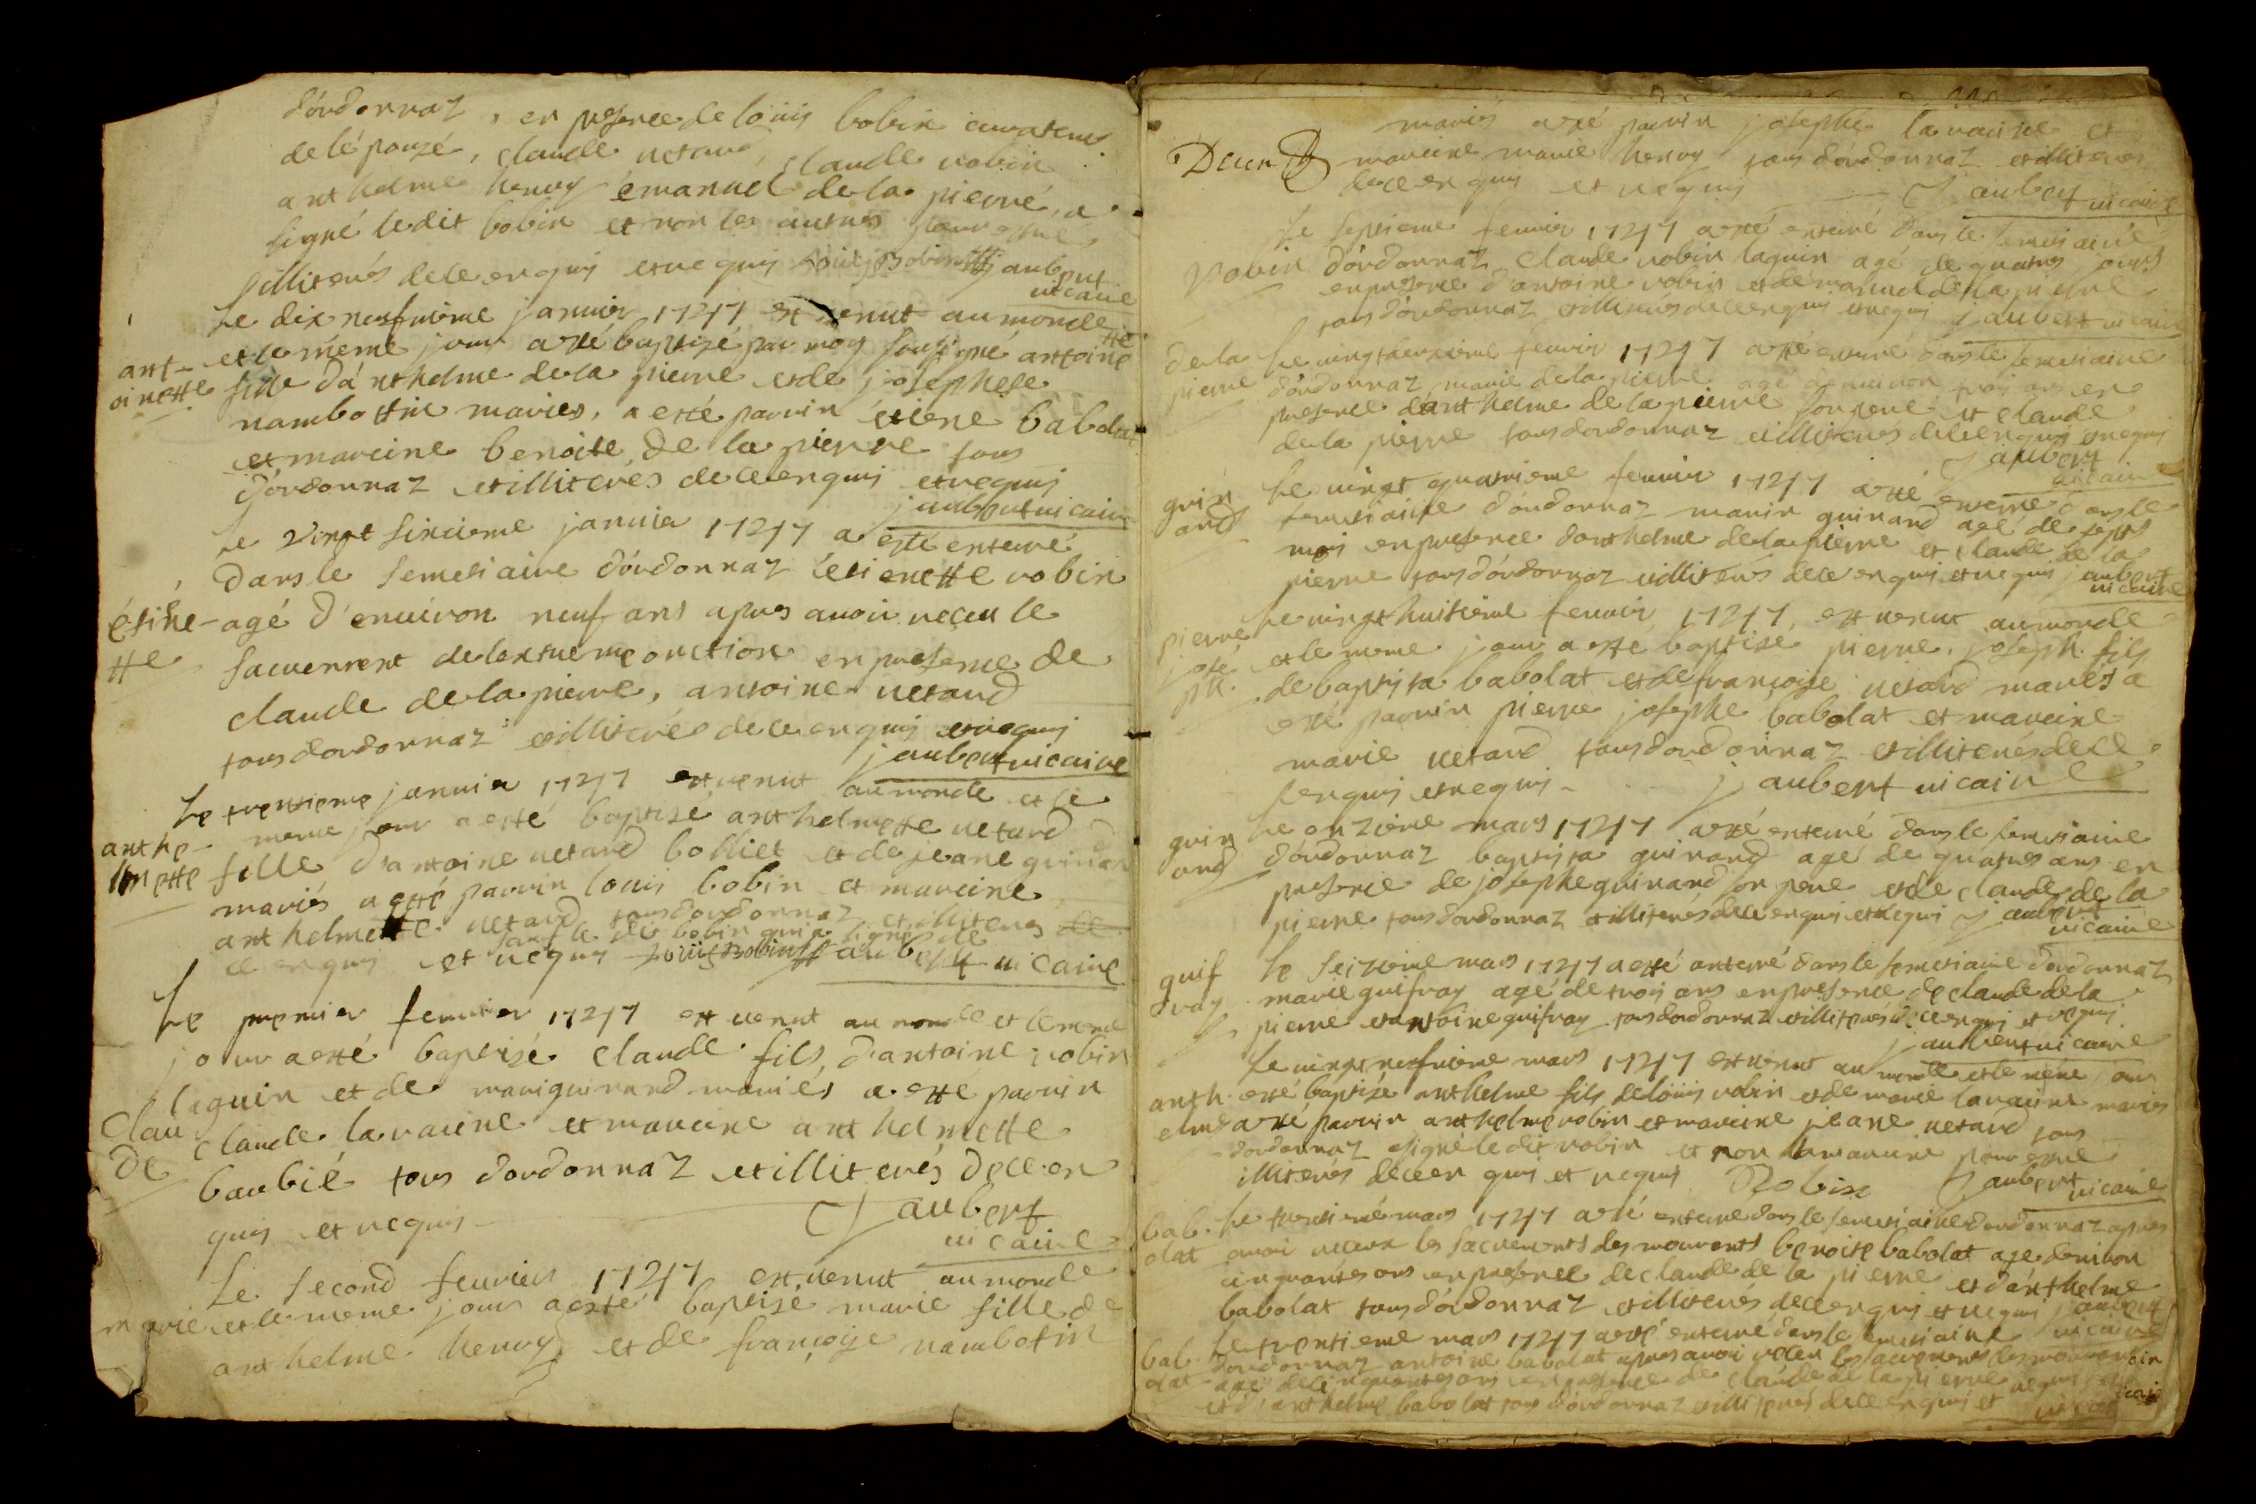 d'ordonnaz, en presence de loüis bobin curateur
de lépouzé, claude uetard, claude robin
anthelme heruy emanuel de la pierre, a
signé ledit bobin et non les autres pour estre
illiterés de ce enquis et requis Loüis Bobin J aubert
uicaire
Le dix neufuieme januier 1747 est uenut au monde
et le meme jour a esté baptizé par moy soussigné antoinette
ant-
oinette
fille d'anthelme de la pierre et de josephe
nambottin mariés, a esté parrin etiene babolat
et mareine benoite de la pierre tous
d'ordonnaz et illiterés de ce enquis et requis
j aubert uicaire
Le vingt sixieme januier 1747 a esté enterré
dans le semetiaire d'ordonnaz étienette robin
étine-
tte
agé d'enuiron neuf ans apres auoir reçeu le
sacrement de lextreme onction en presence de
claude de la pierre, antoine uetard
tous dordonnaz et illiterés de ce enquis et requis
j aubert uicaire
Le trentieme januier 1747 est uenut au monde et le
meme jour a esté baptizé anthelmette uetard
anthe-
lmette
fille d'antoine uetard bolliet et de jeane guinard
mariés a esté parrin louis bobin et mareine
anthelmette uetard tous dordonnaz et illiterés de
sauf le dit bobin qui a signé de
ce enquis et requis Loüis Bobin J aubert uicaire
Le premier feurier 1747 est uenut au monde et le meme
jour a esté baptizé claude fils d'antoine robin
laguin et de marie guinard mariés a esté parrin
Clau
de
claude larauine et mareine anthelmette
barbié tous dordonnaz et illiterés de ce en
quis et requis
J aubert
uicaire
Le second feurier 1747 est uenut au monde
marie
et le meme jour a esté baptizé marie fille de
anthelme heruy et de françoise nambotin
mariés a esté parrin josephe larauine et
mareine marie heruy tous d'ordonnaz et illiterés
de ce enquis et requis J aubert uicaire
Le septieme feurier 1747 a esté enterré dans le semetiaire
Robin
d'ordonnaz claude robin laguin agé de quatre jours
en presence d'antoine robin et d'emanuel de la pierre
tous d'ordonnaz et illiterés de ce enquis et requis J aubert uicaire
de la
pierre
Le uingt deuxieme feurier 1747 a esté enterré dans le semetiaire
d'ordonnaz marie de la pierre agé d'enuiron trois ans en
presence d'anthelme de la pierre son pere et claude
de la pierre tous dordonnaz et illiterés de ce enquis et requis
J aubert
uicaire
guin
ard
Le uingt quatrieme feurier 1747 a esté enterré dans le
semetiaire d'ordonnaz marin guinard agé de sept
mois en presence d'anthelme de la pierre et claude de la
pierre tous d'ordonnaz et illiterés de ce enquis et requis j aubert
uicaire
pierre
jose
ph.
Le uingt huitieme feurier 1747, est uenut au monde
et le meme jour a esté baptizé pierre, joseph fils
de baptista babolat et de françoize uetard mariés a
esté parrin pierre josephe babolat et mareine
marie uetard tous dordonnaz et illiterés de ce
enquis et requis j aubert uicaire
guin
ard
Le onzieme mars 1747 a esté enterré dans le semetiaire
d'ordonnaz baptista guinard agé de quatre ans en
presence de josephe guinard son pere et de claude de la
pierre tous dordonnaz et illiterés de ce enquis et requis j aubert
uicaire
guif
ray
Le seizieme mars 1747 a esté enterré dans le semetiaire d'ordonnaz
marie guifray agé de trois ans en presence de claude de la
pierre et antoine guifray tous dordonnaz et illiterés de ce enquis et requis
j aubert uicaire
Le uingt neufuieme mars 1747 est uenut au monde et le meme jour
anth-
elme
esté baptizé anthelme fils de loüis robin et de marie larauine mariés
a esté parrin anthelme robin et mareine jeane uetard tous
dordonnaz a signé le dit robin et non la mareine pour estre
illiterés de ce en quis et requis Robin J aubert
uicaire
bab-
olat
Le trentieme mars 1747 a esté enterré dans le semetiaire dordonnaz apres
auoir receux les sacrements des mourants benoite babolat agé denuiron
cinquantes ans en presence de claude de la pierre et d'anthelme
babolat tous d'ordonnaz et illiterés de ce enquis et requis j aubert
uicaire
bab-
olat
Le trentieme mars 1747 a esté enterré dans le semetiaire
dordonnaz antoine babolat apres auoir receu les sacrements des mourants
agé de cinquantes ans en presence de claude de la pierre
et d'anthelme babolat tous d'ordonnaz et illiterés de ce enquis et requis
uicaire